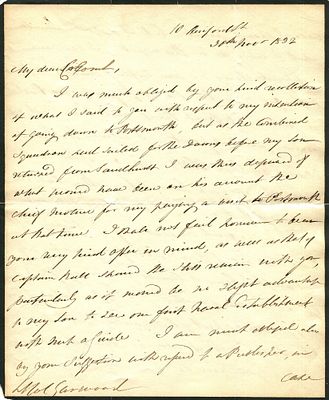 10 Rumford St
30th Novr 1832
My dear Colonel,
I was much obliged by your kind recollection
of what I said to you with respect to my intention
of going down to Portsmouth, but as the Combined
Squadron had sailed for the Downs before my son
returned from Sandhurst I was thus deprived of
what would have been on his account the
chief motive for my paying a visit to Portsmouth
at that time. I shall not fail however to bear
your very kind offer in mind, as well as that of
Captain should he still remain with you
particularly as it would be no slight advantage
to my son to see our first Naval Establishment
with such a Guide. I am much obliged also
by your suggestion with regard to a Publisher, in
Lt Col Garwood
case